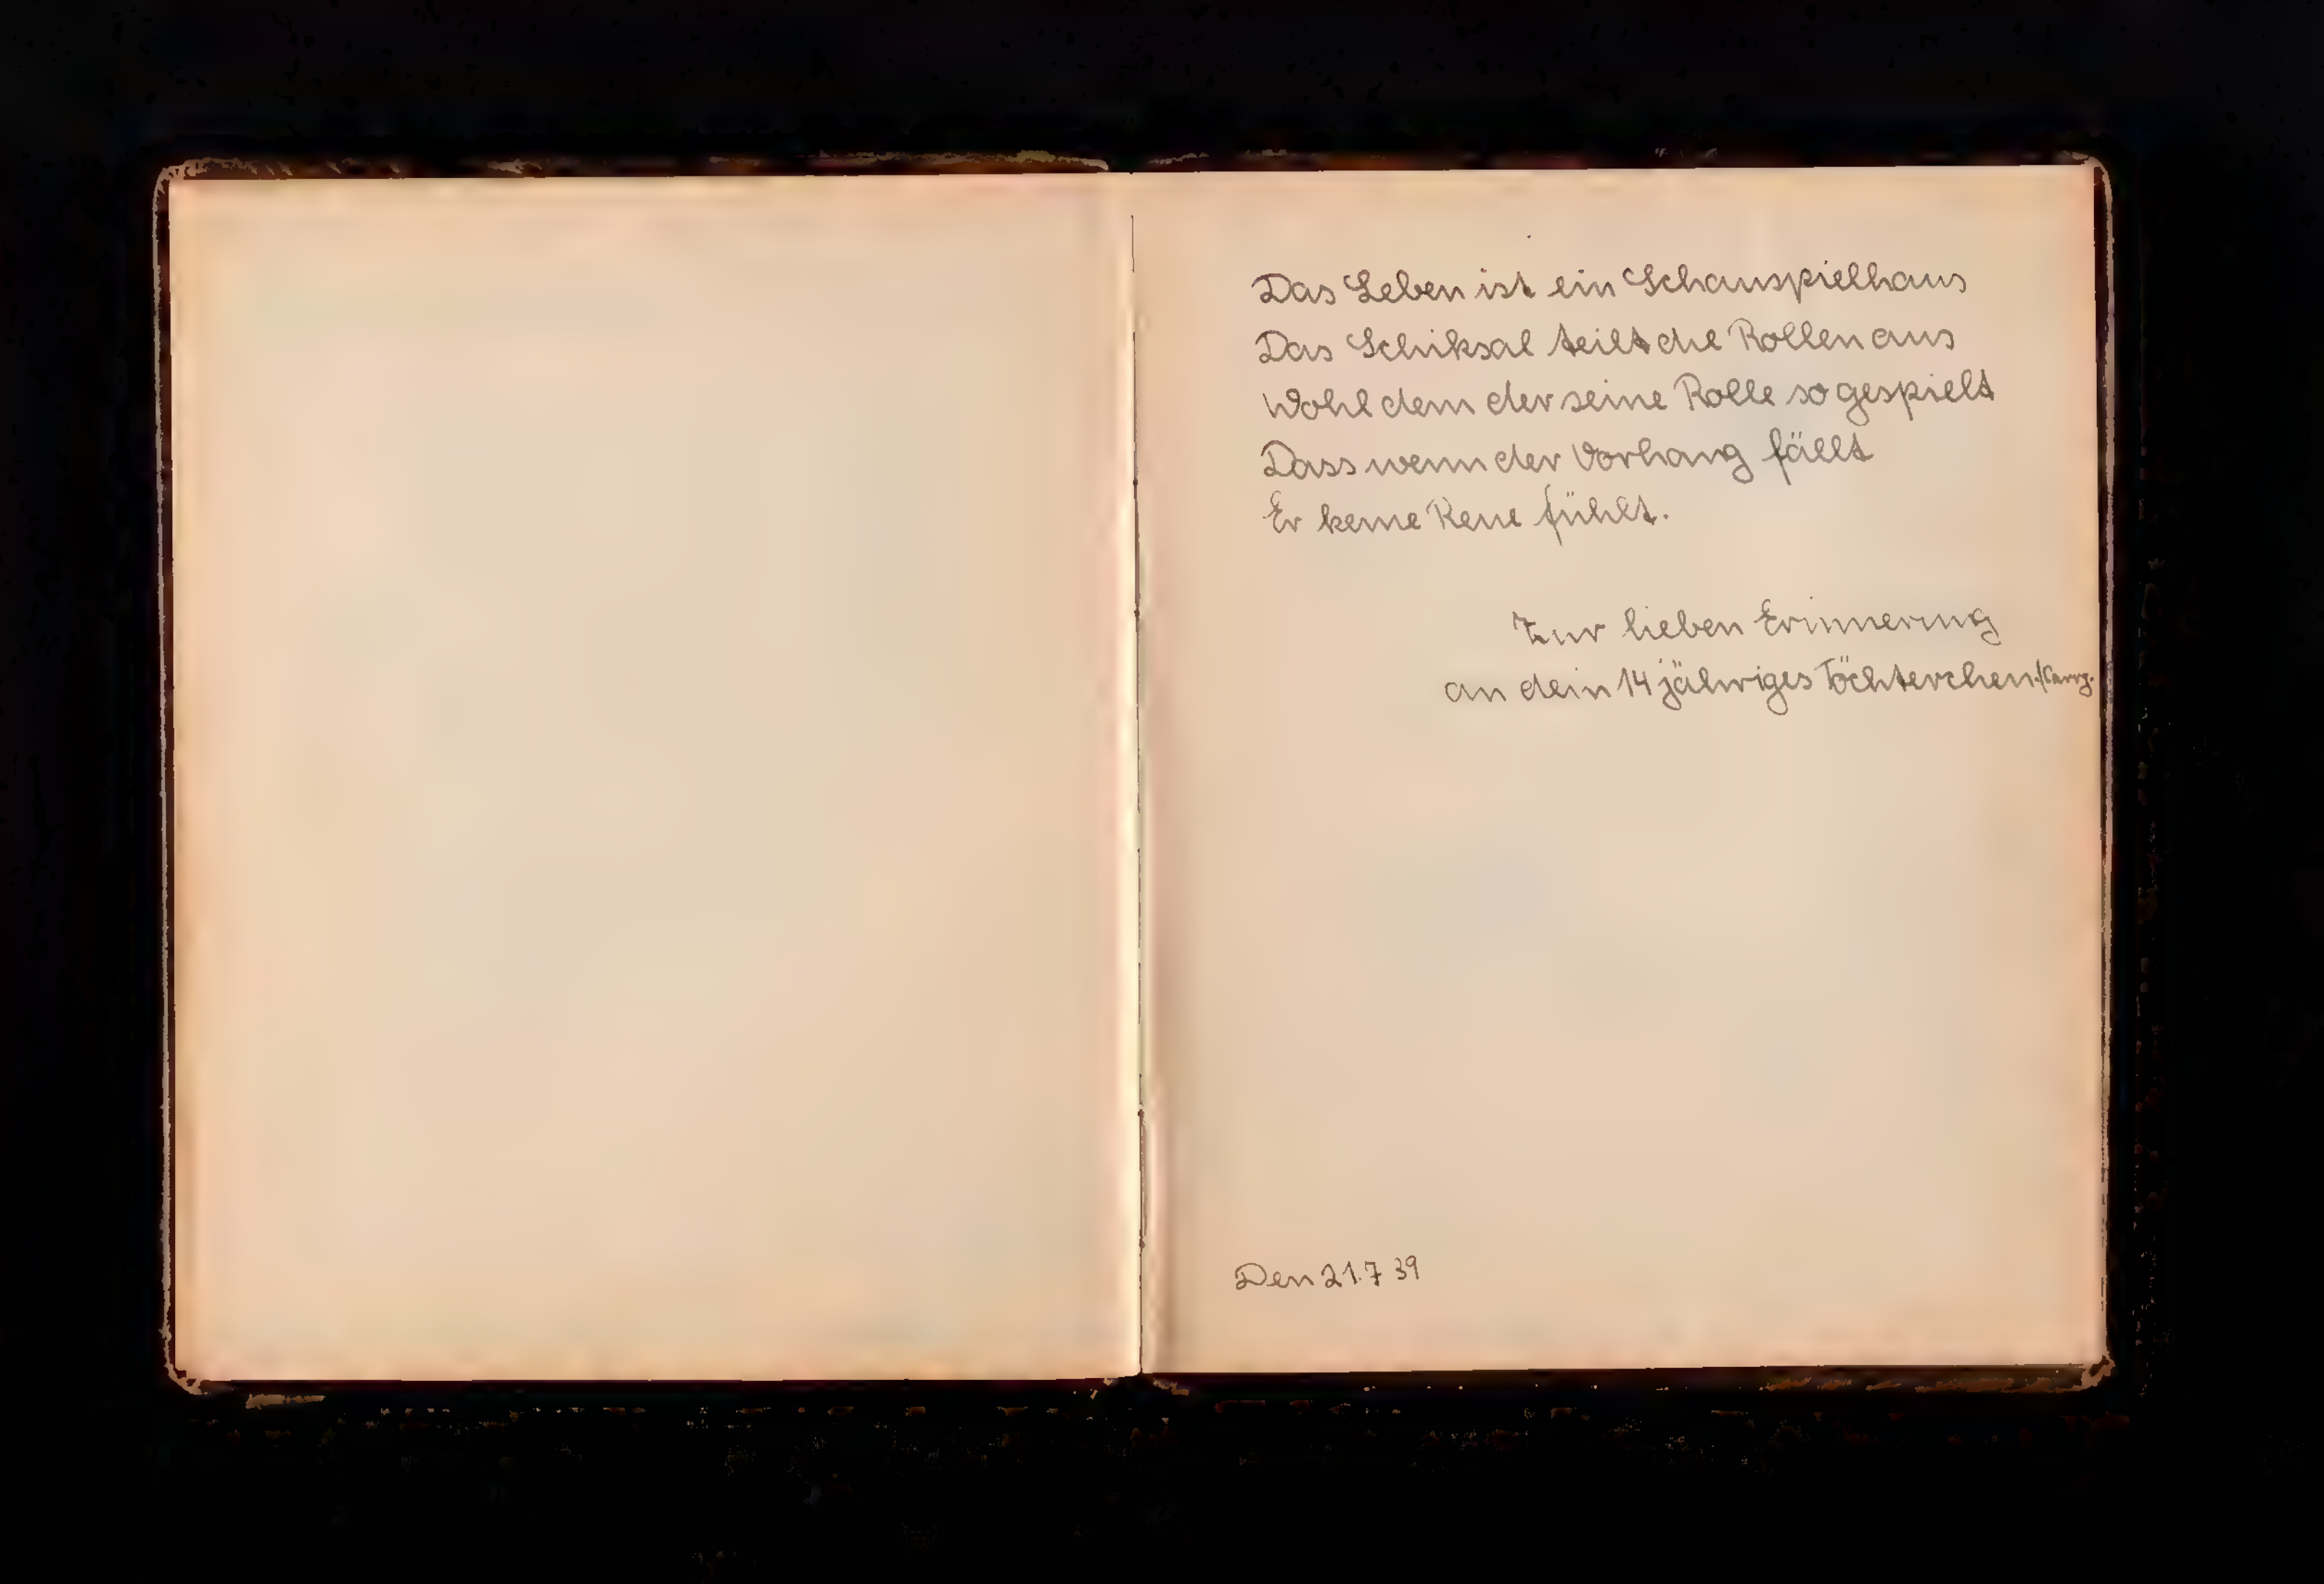 Das Leben ist ein Schauspielhaus
Das Schiksal teilt die Rollen aus
Wohl dem der seine Rolle so gespielt
Dass wenn der Vorhang fällt
Er keine Reue fühlt.
Zur lieben Erinnerung
an dein 14 jähriges Töchterchen
Den 21.7 39